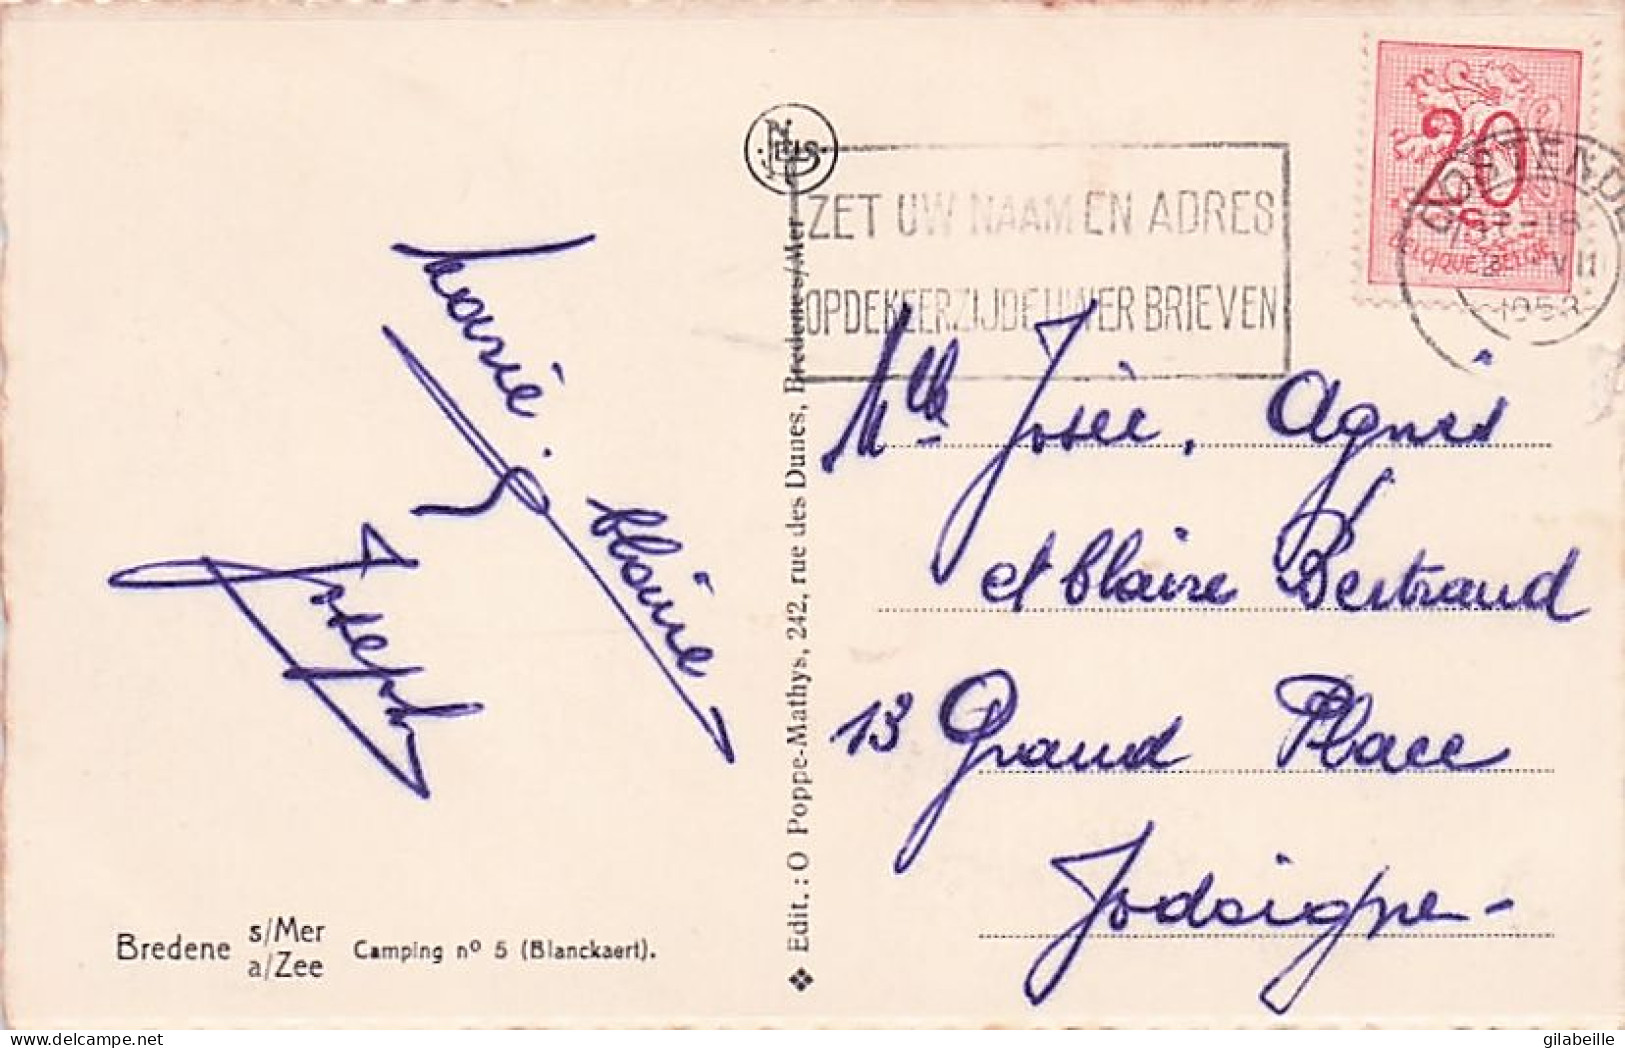 Marie.
Claire
Joseph
Bredene s/Mer
a/Zee
Camping nº 5 (Blanckaert).
❖ Edit. : O Poppe-Mathys, 242, rue des Dunes, Bredenes/Mer
NELS
ZET UW NAAM EN ADRES
OP DE KEERZIJDE UWER BRIEVEN
20
BELGIQUE BELGIE
OOSTENDE
VII
1953
Mlle Josée, Agnès
et Claire Bertrand
13 Grand Place
Jodoigne -
gilabeille